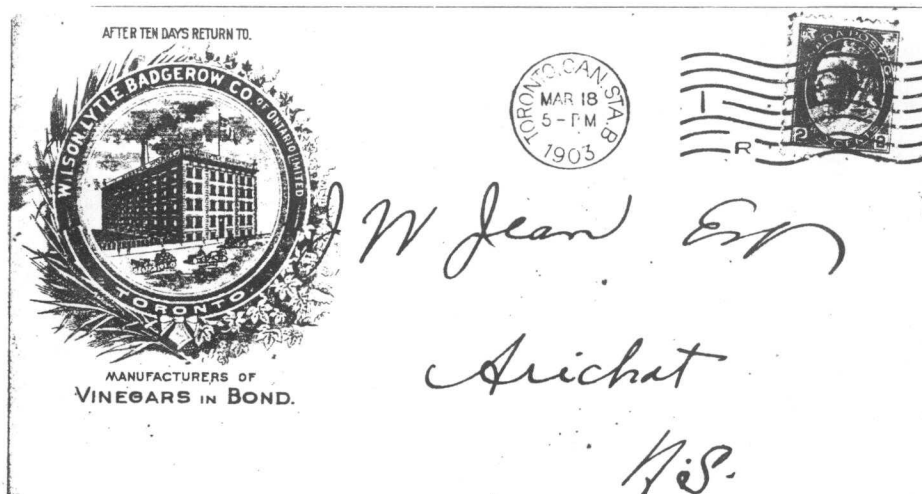 AFTER TEN DAYS RETURN TO.
WILSON, LYTLE BADGEROW CO. OF ONTARIO LIMITED
TORONTO.
MANUFACTURERS OF
VINEGARS IN BOND.
TORONTO. CAN. STA. B
MAR 18
5 - PM
1903
I
R
CANADA POSTAGE
2 2
J W Jean Esq
Arichat
N.S.